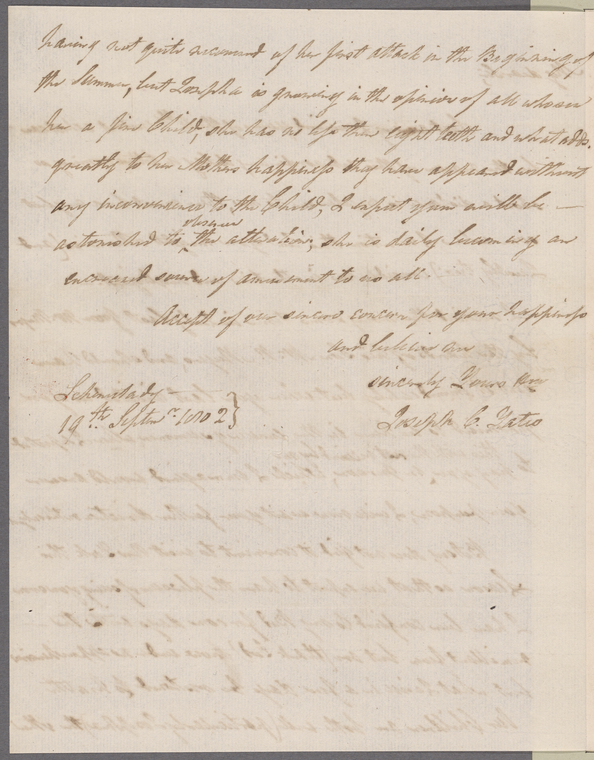 having not quite recovered of her first attack in the Beginning of
the Summer, but Josepha is growing in the opinion of all who see
her a fine Child, she has no less than eight teeth and what adds
greatly to her Mothers happiness they have appeared without
any inconvenience to the Child, I expect you will be —
observe
astonished to the alteration, she is daily becoming an
encreased source of amusement to us all.
Accept of our sincere concern for your happiness
and believe me
sincerely Yours
Joseph C. Yates
Schenectady —
19th. Septmr. 1802 }